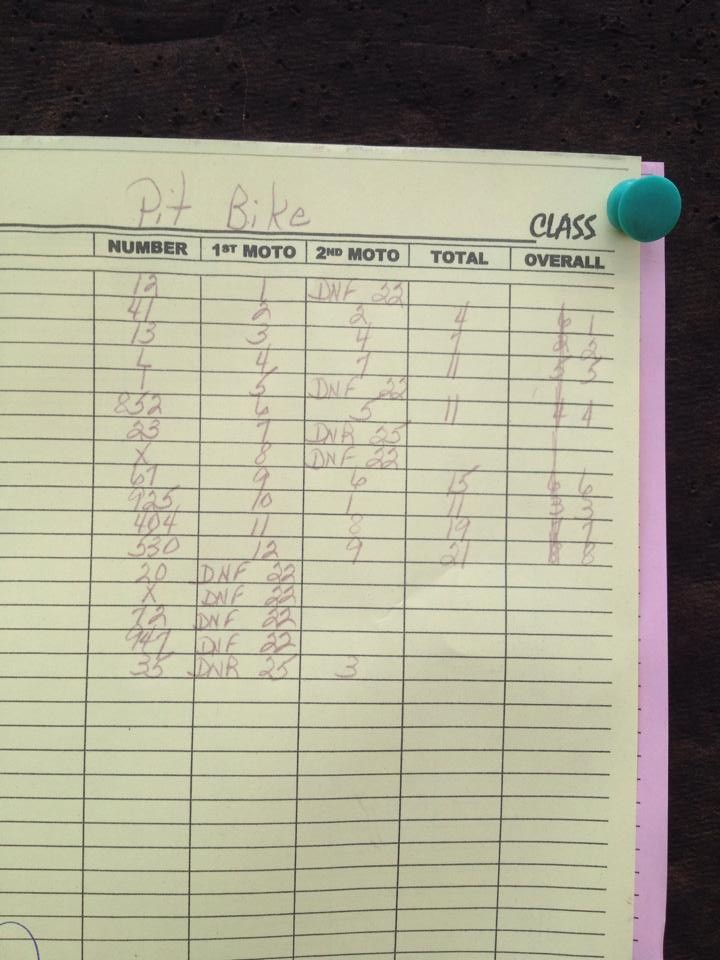 Pit Bike
CLASS
NUMBER 1ST MOTO 2ND MOTO TOTAL OVERALL
12 1 DNF 22
41 2 2 4 1
13 3 4 7 2
4 7 11 5
5 DNF 22
852 6 5 11 4 4
23 7 DNR 25
X 8 DNF 22
67 9 6 15 6 6
925 10 1 11 3 3
404 11 8 19 7 7
530 12 9 21 8 8
20 DNF 22
X DNF 22
72 DNF 22
947 DNF 22
35 DNR 25 3